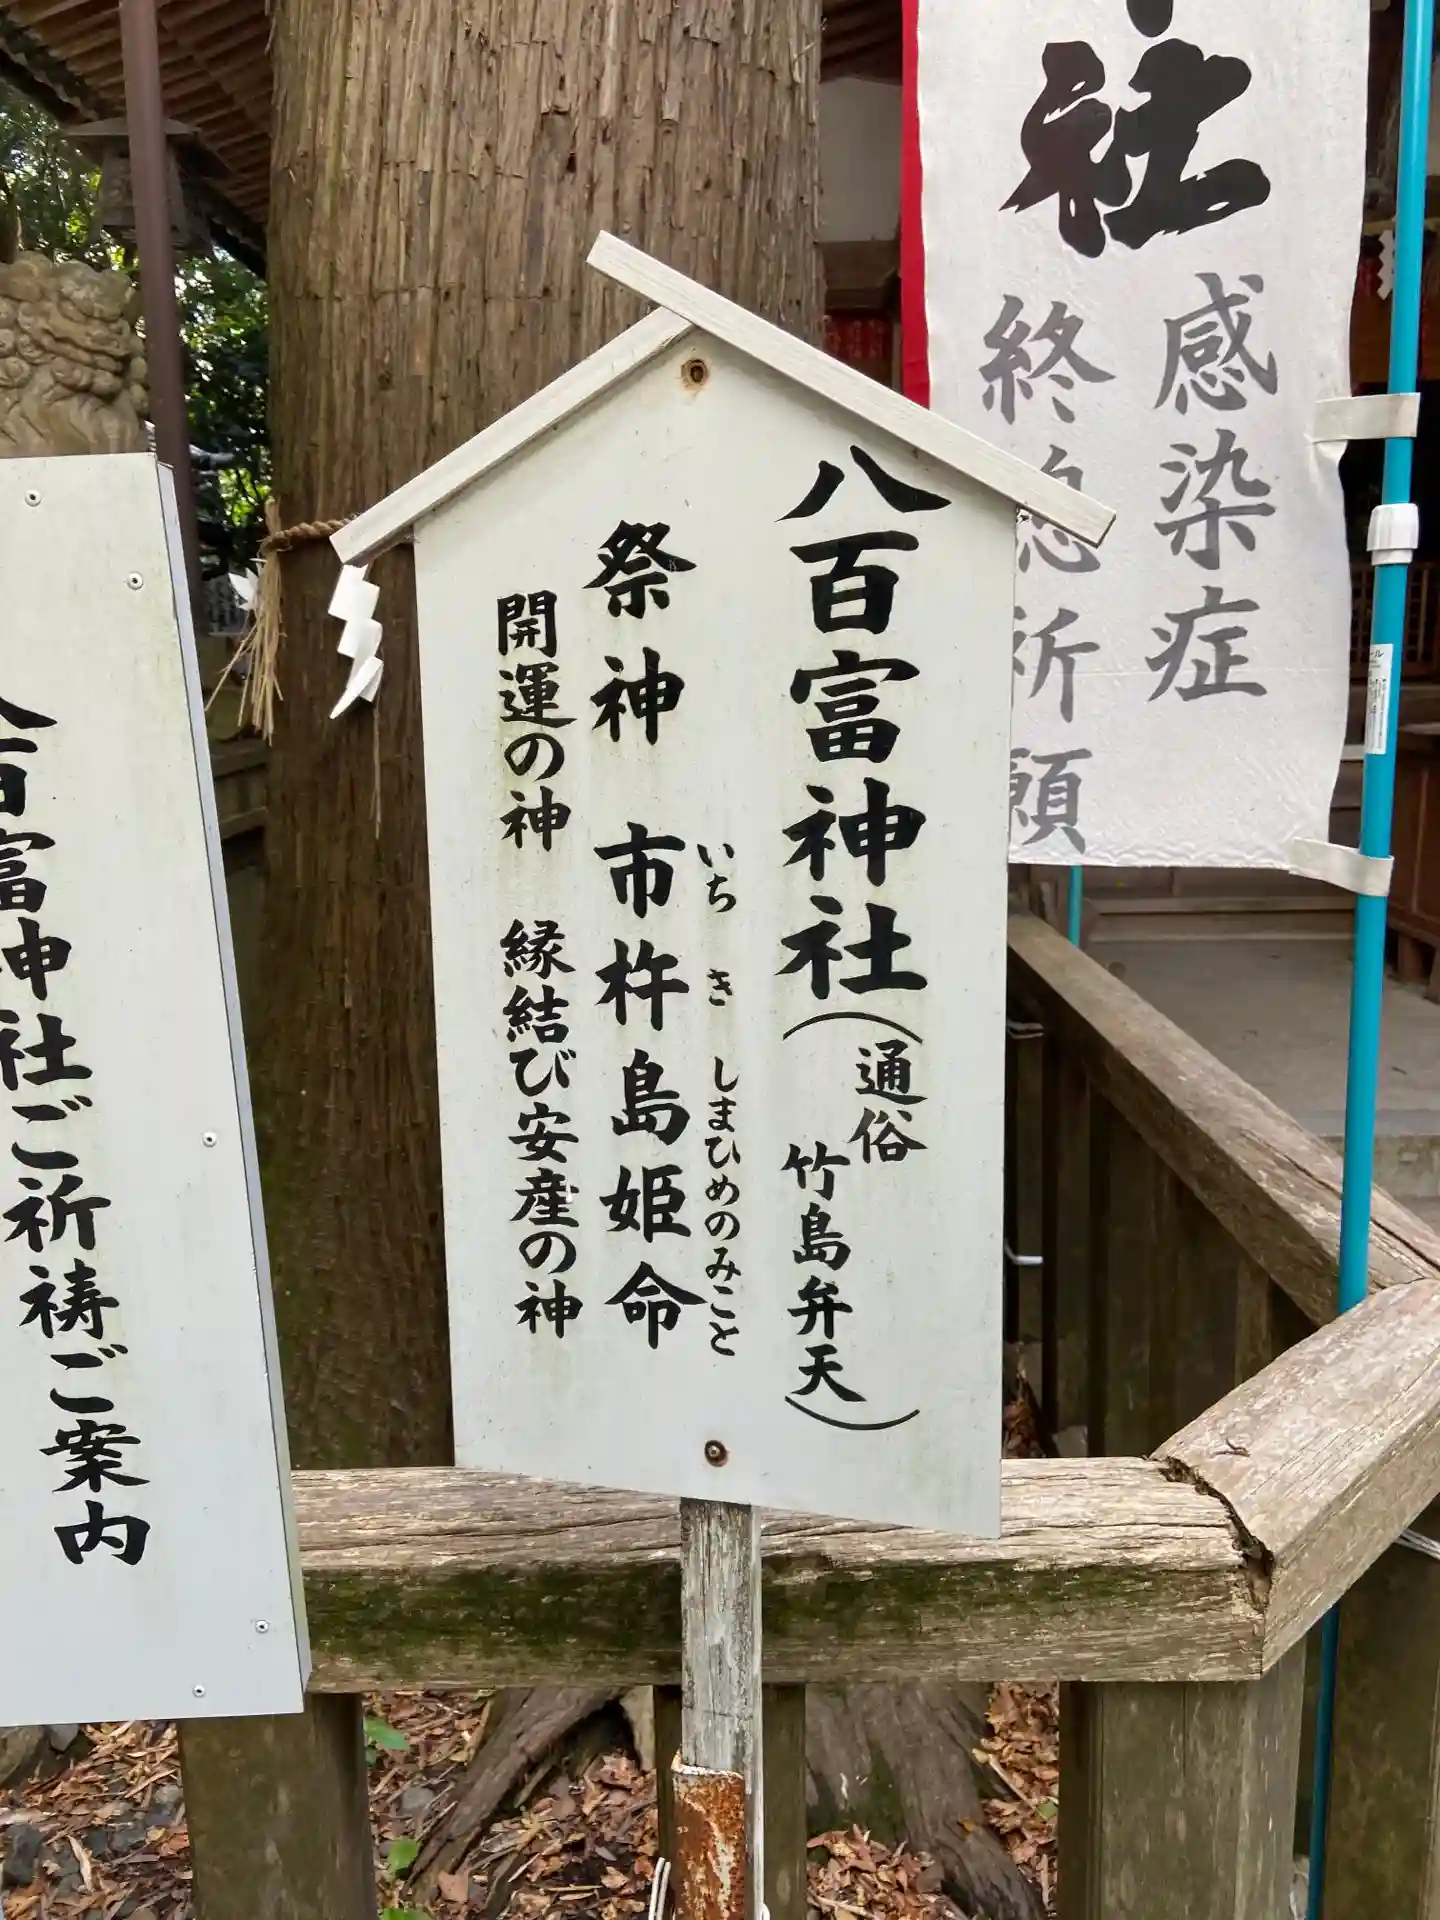 社
感染症
終息祈願
八百富神社（通俗 竹島弁天）
いちきしまひめのみこと
祭神 市杵島姫命
開運の神 縁結び安産の神
八百富神社ご祈祷ご案内